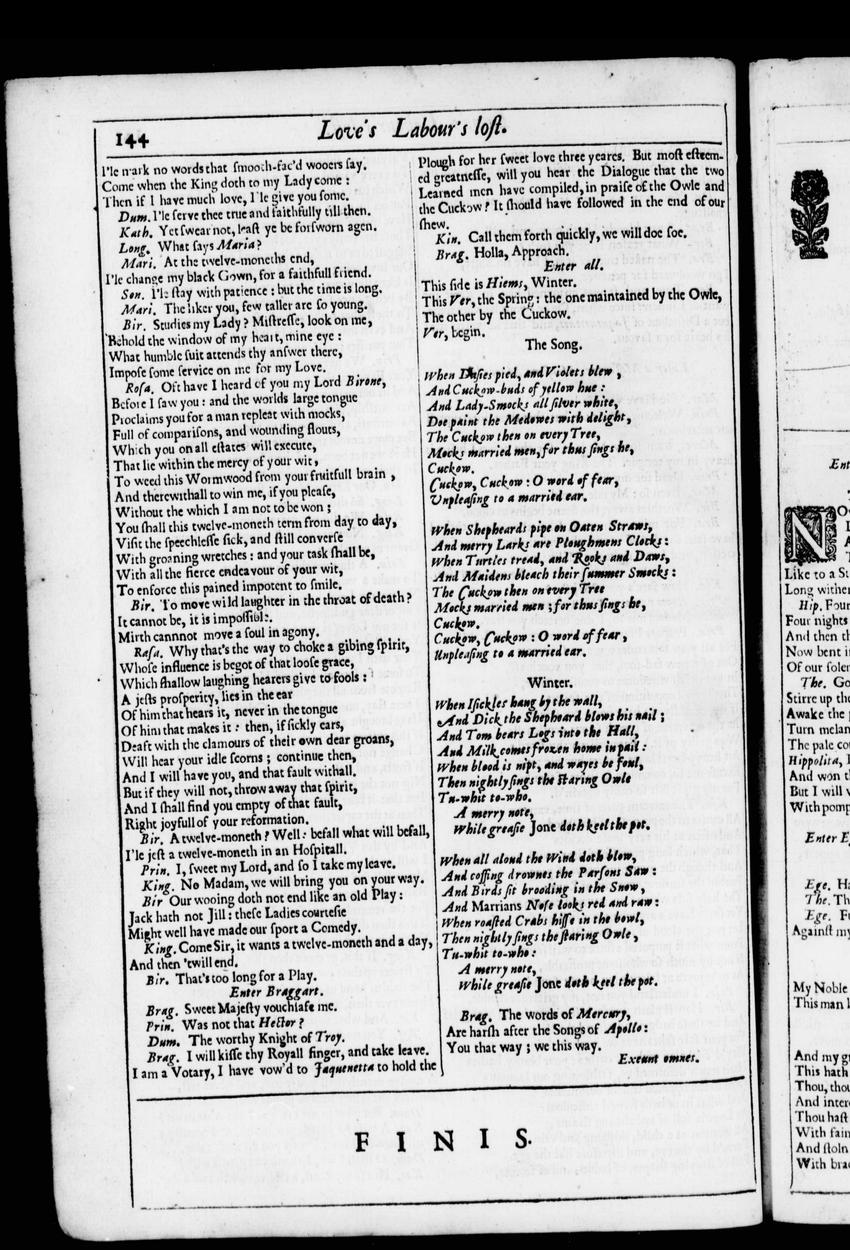 144
Love's Labour's lost.
I'le mark no words that smooth-fac'd wooers say.
Come when the King doth to my Lady come :
Then if I have much love, I'le give you some.
Dum. I'le serve thee true and faithfully till then.
Kath. Yet swear not, least ye be forsworn agen.
Long. What says Maria?
Mari. At the twelve-moneths end,
I'le change my black Gown, for a faithfull friend.
Son. I'le stay with patience : but the time is long.
Mari. The liker you, few taller are so young.
Bir. Studies my Lady? Mistresse, look on me,
Behold the window of my heart, mine eye :
What humble suit attends thy answer there,
Impose some service on me for my Love.
Rosa. Oft have I heard of you my Lord Birone,
Before I saw you : and the worlds large tongue
Proclaims you for a man repleat with mocks,
Full of comparisons, and wounding flouts,
Which you on all estates will execute,
That lie within the mercy of your wit,
To weed this Wormwood from your fruitfull brain ,
And therewithall to win me, if you please,
Without the which I am not to be won ;
You shall this twelve-moneth term from day to day,
Visit the speechlesse sick, and still converse
With groaning wretches : and your task shall be,
With all the fierce endeavour of your wit,
To enforce this pained impotent to smile.
Bir. To move wild laughter in the throat of death?
It cannot be, it is impossible.
Mirth cannnot move a soul in agony.
Rasa. Why that's the way to choke a gibing spirit,
Whose influence is begot of that loose grace,
Which shallow laughing hearers give to fools :
A jests prosperity, lies in the ear
Of him that hears it, never in the tongue
Of him that makes it : then, if sickly ears,
Deaft with the clamours of their own dear groans,
Will hear your idle scorns ; continue then,
And I will have you, and that fault withall.
But if they will not, throw away that spirit,
And I shall find you empty of that fault,
Right joyfull of your reformation.
Bir. A twelve-moneth? Well: befall what will befall,
I'le jest a twelve-moneth in an Hospitall.
Prin. I, sweet my Lord, and so I take my leave.
King. No Madam, we will bring you on your way.
Bir Our wooing doth not end like an old Play :
Jack hath not Jill : these Ladies courtesie
Might well have made our sport a Comedy.
King. Come Sir, it wants a twelve-moneth and a day,
And then 'twill end.
Bir. That's too long for a Play.
Enter Braggart.
Brag. Sweet Majesty vouchsafe me.
Prin. Was not that Hector?
Dum. The worthy Knight of Troy.
Brag. I will kisse thy Royall finger, and take leave.
I am a Votary, I have vow'd to Jaquenetta to hold the
Plough for her sweet love three yeares. But most esteem-
ed greatnesse, will you hear the Dialogue that the two
Learned men have compiled, in praise of the Owle and
the Cuckow? It should have followed in the end of our
shew.
Kin. Call them forth quickly, we will doe soe.
Brag. Holla, Approach.
Enter all.
This side is Hiems, Winter.
This Ver, the Spring: the one maintained by the Owle,
The other by the Cuckow.
Ver, begin.
The Song.
When Dasies pied, and Violets blew ,
And Cuckow-buds of yellow hue :
And Lady-Smocks all silver white,
Doe paint the Medowes with delight,
The Cuckow then on every Tree,
Mocks married men, for thus sings he,
Cuckow.
Cuckow, Cuckow : O word of fear,
Unpleasing to a married ear.
When Shepheards pipe on Oaten Straws,
And merry Larks are Ploughmens Clocks :
When Turtles tread, and Rooks and Daws,
And Maidens bleach their summer Smocks :
The Cuckow then on every Tree
Mocks married men ; for thus sings he,
Cuckow.
Cuckow, Cuckow : O word of fear ,
Unpleasing to a married ear.
Winter.
When Isickles hang by the wall,
And Dick the Shepheard blows his nail ;
And Tom bears Logs into the Hall,
And Milk comes frozen home in pail :
When blood is nipt, and wayes be foul,
Then nightly sings the staring Owle
Tu-whit to-who.
A merry note,
While greasie Jone doth keel the pot.
When all aloud the Wind doth blow,
And coffing drownes the Parsons Saw :
And Birds sit brooding in the Snow,
And Marrians Nose looks red and raw:
When roasted Crabs hisse in the bowl,
Then nightly sings the staring Owle ,
Tu-whit to-who :
A merry note,
While greasie Jone doth keel the pot.
Brag. The words of Mercury,
Are harsh after the Songs of Apollo:
You that way ; we this way.
Exeunt omnes.
FINIS.
Ent
N
Like to a St
Long wither
Hip. Four
Four nights
And then th
Now bent i
Of our solem
The. Go
Stirre up the
Awake the p
Turn melan
The pale co
Hippolita, I
And won t
But I will w
With pomp
Enter E
Ege. Ha
The. Th
Ege. Fu
Against my
My Noble
This man h
And my gr
This hath
Thou, thou
And interc
Thou hast
With fain
And stoln
With brac